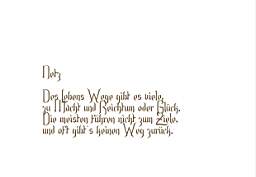 Netz
Des Lebens Wege gibt es viele,
zu Macht und Reichtum oder Glück.
Die meisten führen nicht zum Ziele.
und oft gibt's keinen Weg zurück.